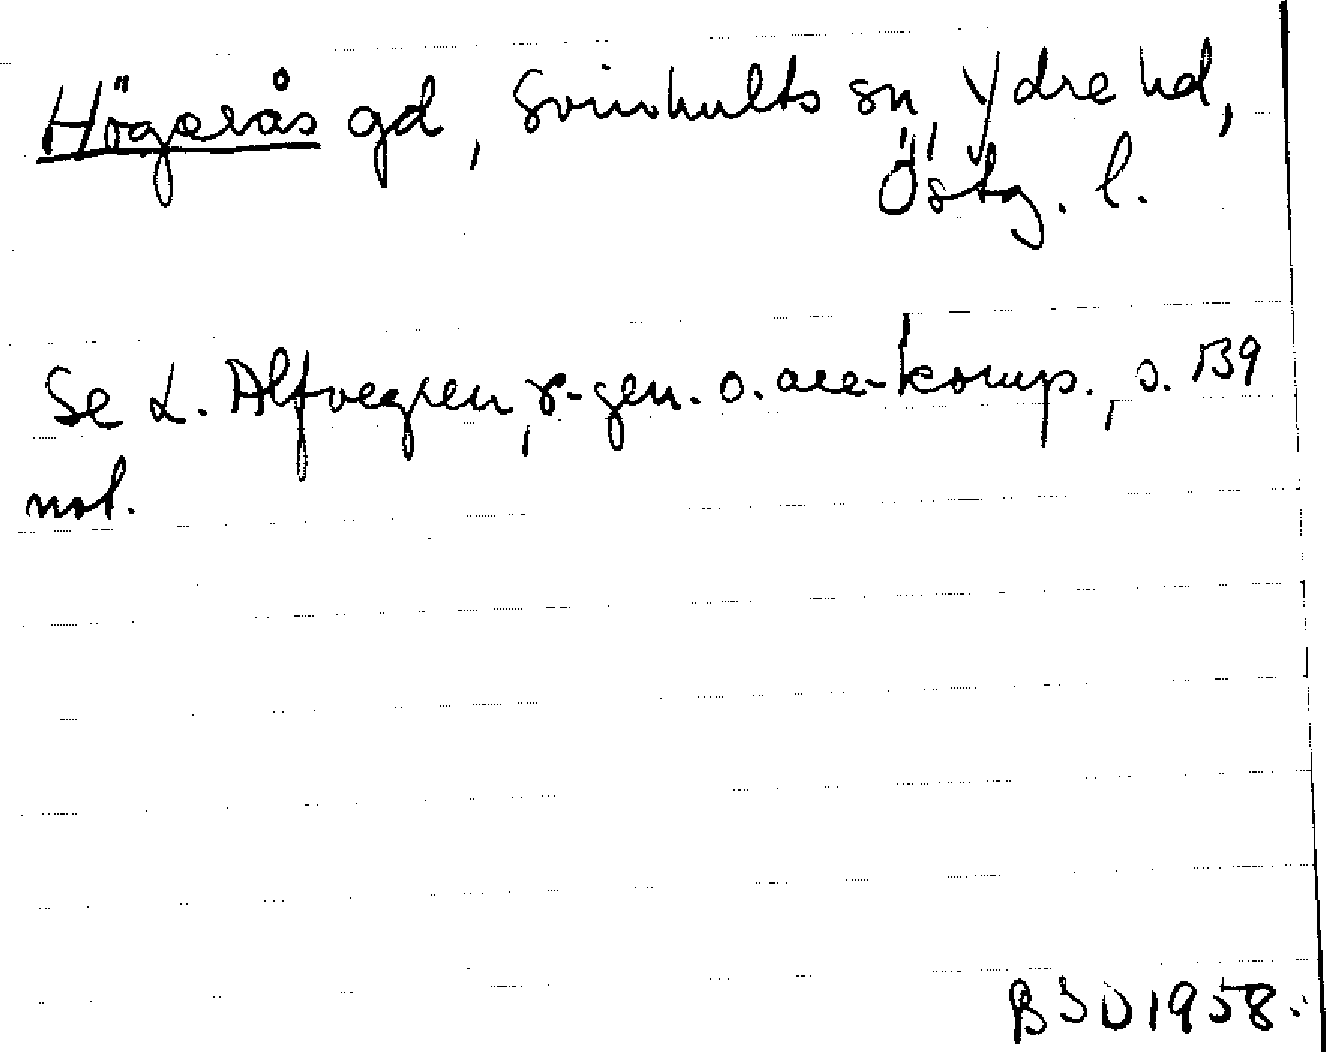 Högerås gd, Svinhults sn, Ydre hd,
Östg. l.
Se L. Alfvegren, r-gen. o. are-komp., s. 139
not.
BSD 1958.